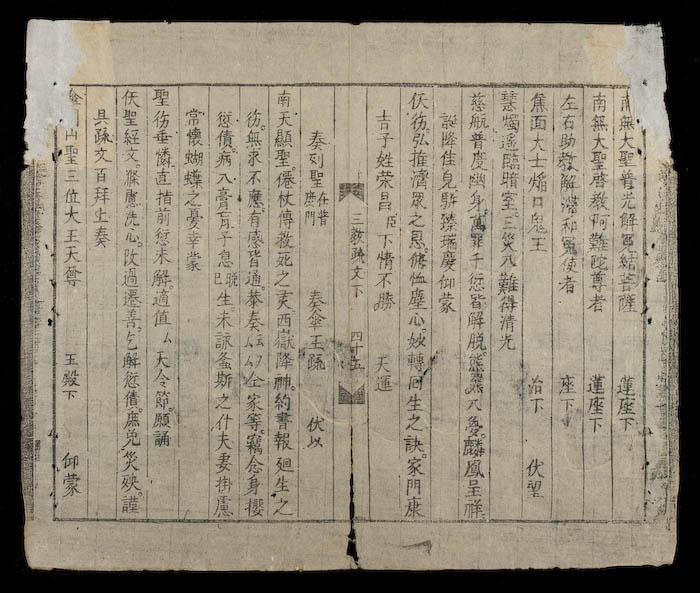 南無大聖普光解冤結菩薩 蓮座下
南無大聖啓教阿難陀尊者 蓮座下
左右助教解滯和冤使者 座下
焦面大士焔口鬼王 治下 伏望
慧燭遙臨暗室三災八難得清光
慈航普度幽身萬罪千愆皆解脱熊羆入夢麟鳳呈祥
誕降佳兒騈臻瑞慶仰蒙
伏彷弘推濟眾之恩俯恤塵心妙轉回生之訣家門康
吉子姓荣昌臣下情不勝 天運
三教䟽文下 四十五
奏列聖在普度門 奏傘王䟽 伏以
南天顯聖僊杖傳救死之灵西嶽降神約書報廻生之
彷無求不應有感皆通恭奏為以仝家等竊念身攖
愆債病入膏肓子息脱已生未詠螽斯之什夫妻掛慮
常懷蝴蝶之憂幸蒙
聖彷垂憐直指前愆未解適值厶天令節願誦
伏聖經文滌慮洗心改過遷善乞解愆債庶免災殃謹
具疏文百拜上奏
山聖三位大王天尊 玉殿下 仰蒙